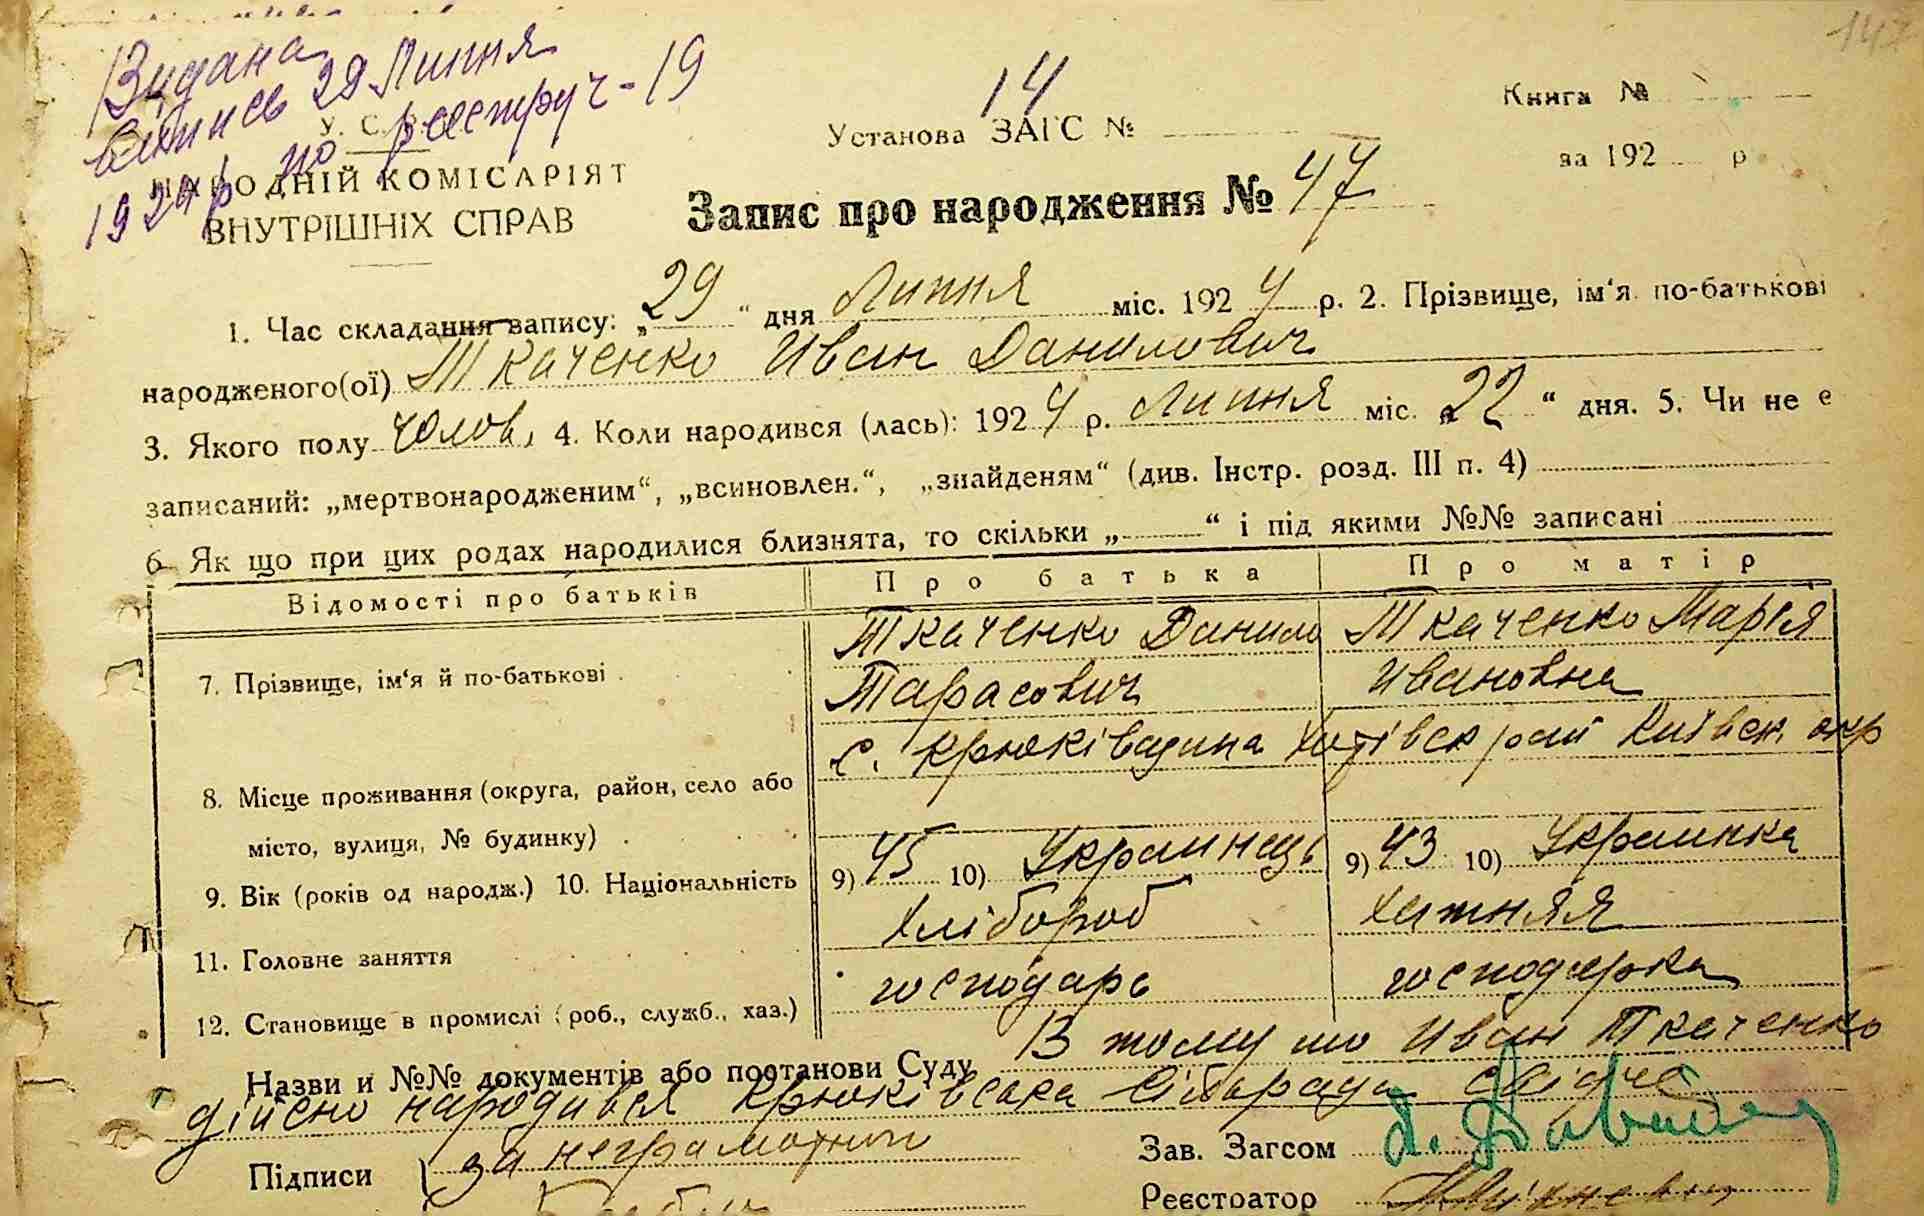 147
Видана
витись 29 Липня
1924 р по реестру ч-19
У. С.
НАРОДНІЙ КОМІСАРІЯТ
ВНУТРІШНІХ СПРАВ
Установа ЗАГС № 14
Книга №
за 192 р
Запис про народження № 47
1. Час складання запису: „29“ дня Липня міс. 1924 р. 2. Прізвище, ім‘я по-батькові
народженого(ої) Ткаченко Иван Данилович
3. Якого полу чолов. 4. Коли народився (лась): 1924 р. Липня міс. „22“ дня. 5. Чи не є
записаний: „мертвонародженим“, „всиновлен.“, „знайденям“ (див. Інстр. розд. III п. 4)
6 Як що при цих родах народилися близнята, то скільки „ “ і під якими №№ записані
Відомості про батьків Про батька Про матір
7. Прізвище, ім‘я й по-батькові Ткаченко Данило Ткаченко Марія
Тарасович Ивановна
с. Крюківщина Хотівск рай Київск. окр
8. Місце проживання (округа, район, село або
місто, вулиця, № будинку)
9. Вік (років од народж.) 10. Національність 9) 45 10) Украинець 9) 43 10) Украинка
11. Головне заняття Хлібороб Хатняя
12. Становище в промислі (роб., служб., хаз.) господарь господарка
Назви и №№ документів або постанови Суду В тому що Иван Ткаченко
дійсно народився Крюківська Сільрада свідче
Підписи за неграмотних
Зав. Загсом
Реєстратор